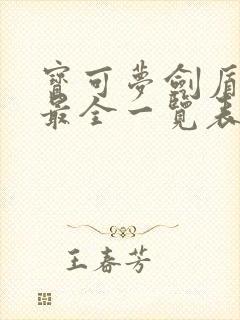 寶可夢劍盾
最全一覽表
王春芳